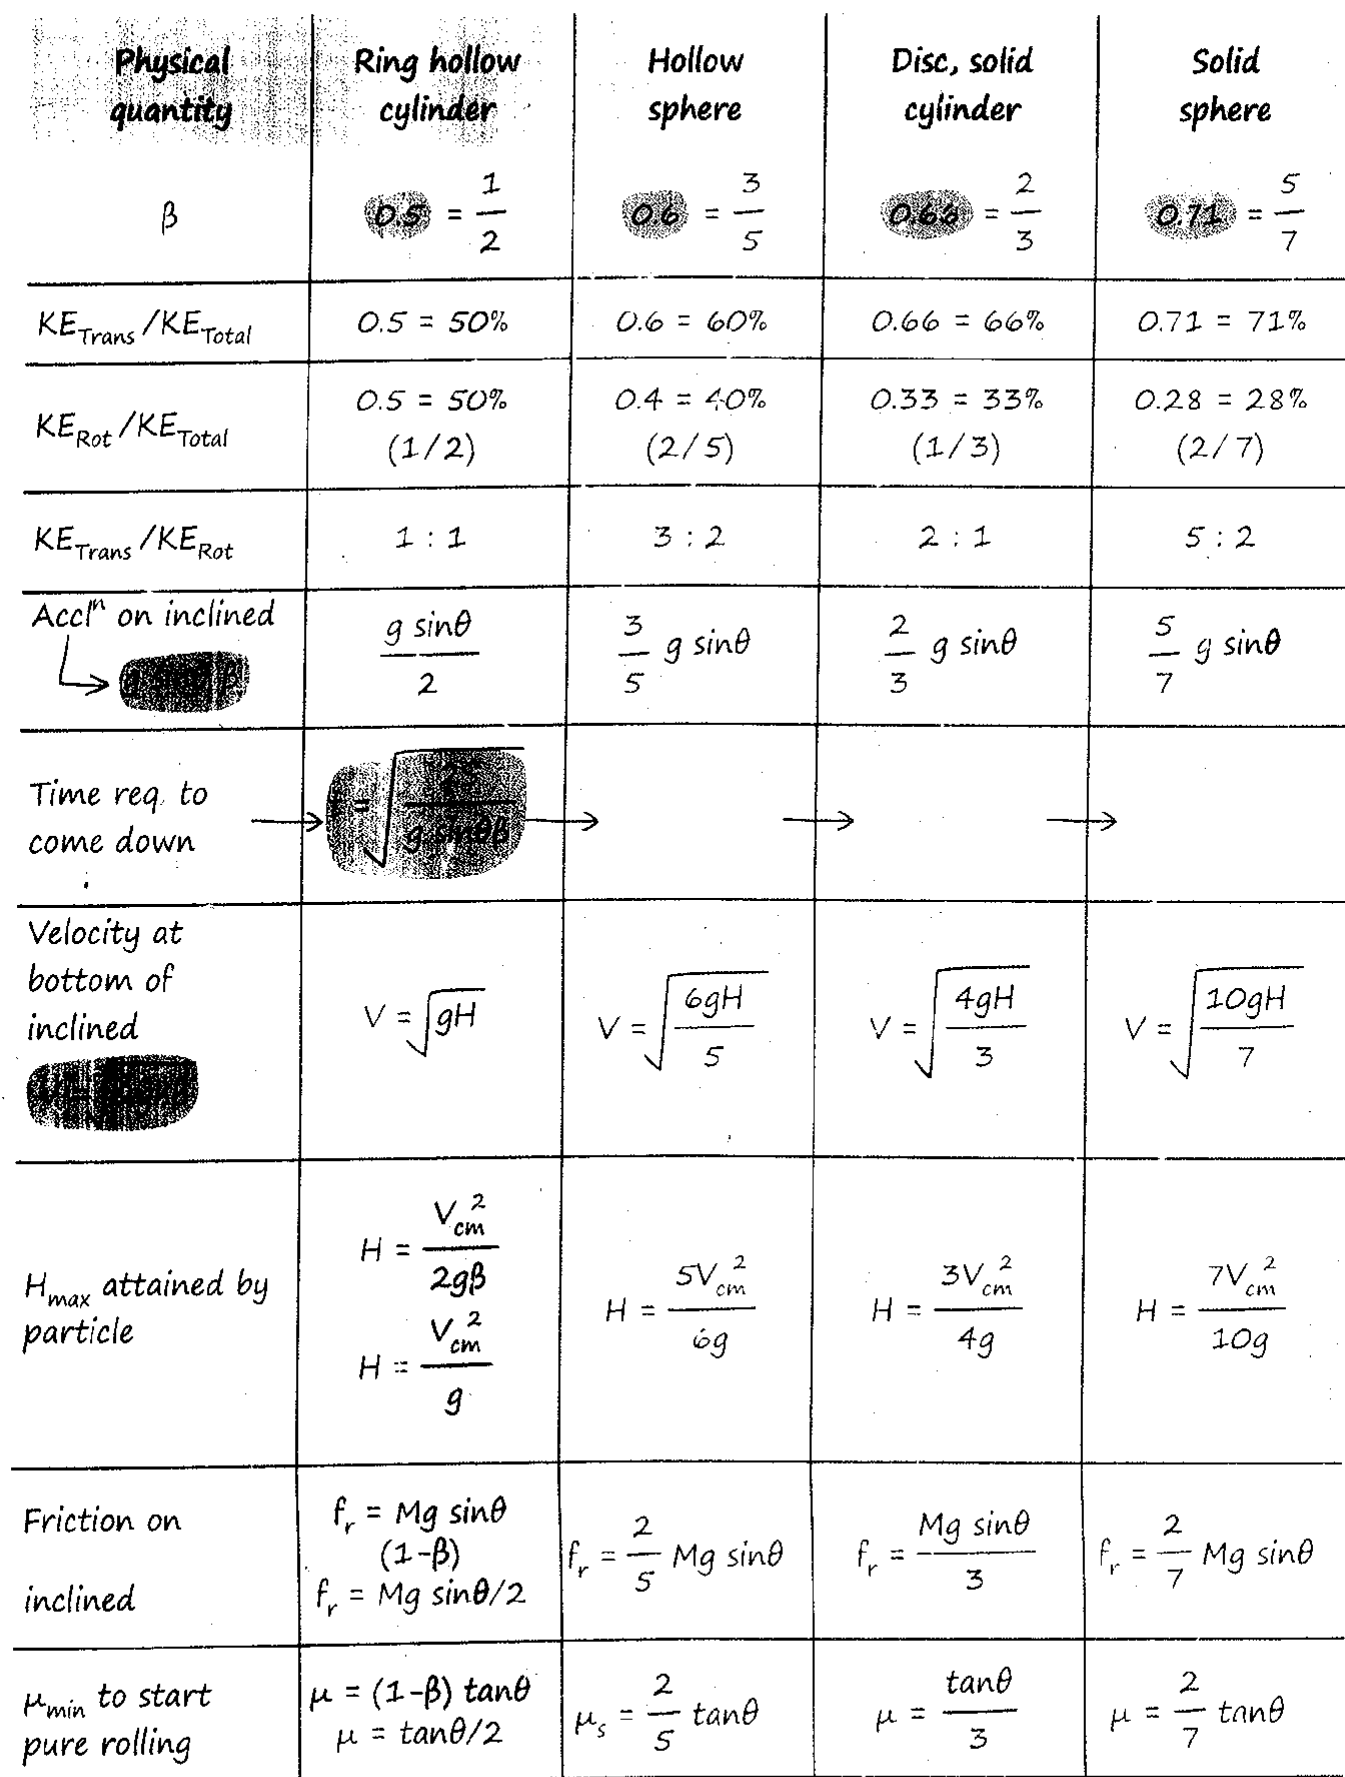 Physical quantity | Ring hollow cylinder | Hollow sphere | Disc, solid cylinder | Solid sphere
β | 0.5 = 1/2 | 0.6 = 3/5 | 0.66 = 2/3 | 0.71 = 5/7
KE_Trans /KE_Total | 0.5 = 50% | 0.6 = 60% | 0.66 = 66% | 0.71 = 71%
KE_Rot /KE_Total | 0.5 = 50% (1/2) | 0.4 = 40% (2/5) | 0.33 = 33% (1/3) | 0.28 = 28% (2/7)
KE_Trans /KE_Rot | 1 : 1 | 3 : 2 | 2 : 1 | 5 : 2
Acclⁿ on inclined → g sinθ β | g sinθ/2 | 3/5 g sinθ | 2/3 g sinθ | 5/7 g sinθ
Time req. to come down → | t = √(2S/g sinθβ) → | → | →
Velocity at bottom of inclined | V = √gH | V = √(6gH/5) | V = √(4gH/3) | V = √(10gH/7)
H_max attained by particle | H = V_cm²/2gβ H = V_cm²/g | H = 5V_cm²/6g | H = 3V_cm²/4g | H = 7V_cm²/10g
Friction on inclined | f_r = Mg sinθ (1-β) f_r = Mg sinθ/2 | f_r = 2/5 Mg sinθ | f_r = Mg sinθ/3 | f_r = 2/7 Mg sinθ
μ_min to start pure rolling | μ = (1-β) tanθ μ = tanθ/2 | μ_s = 2/5 tanθ | μ = tanθ/3 | μ = 2/7 tanθ